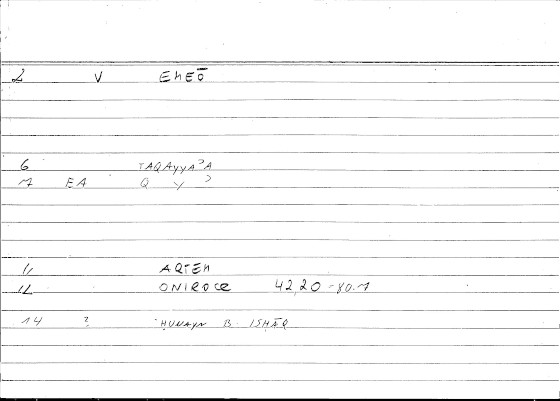 2 V EMEŌ
6 TAQAYYAʾA
7 EA Q Y ʾ
11 ARTEM
12 ONIROCR 42,20 - 80.1
14 ? ḤUNAYN B. ISḤĀQ